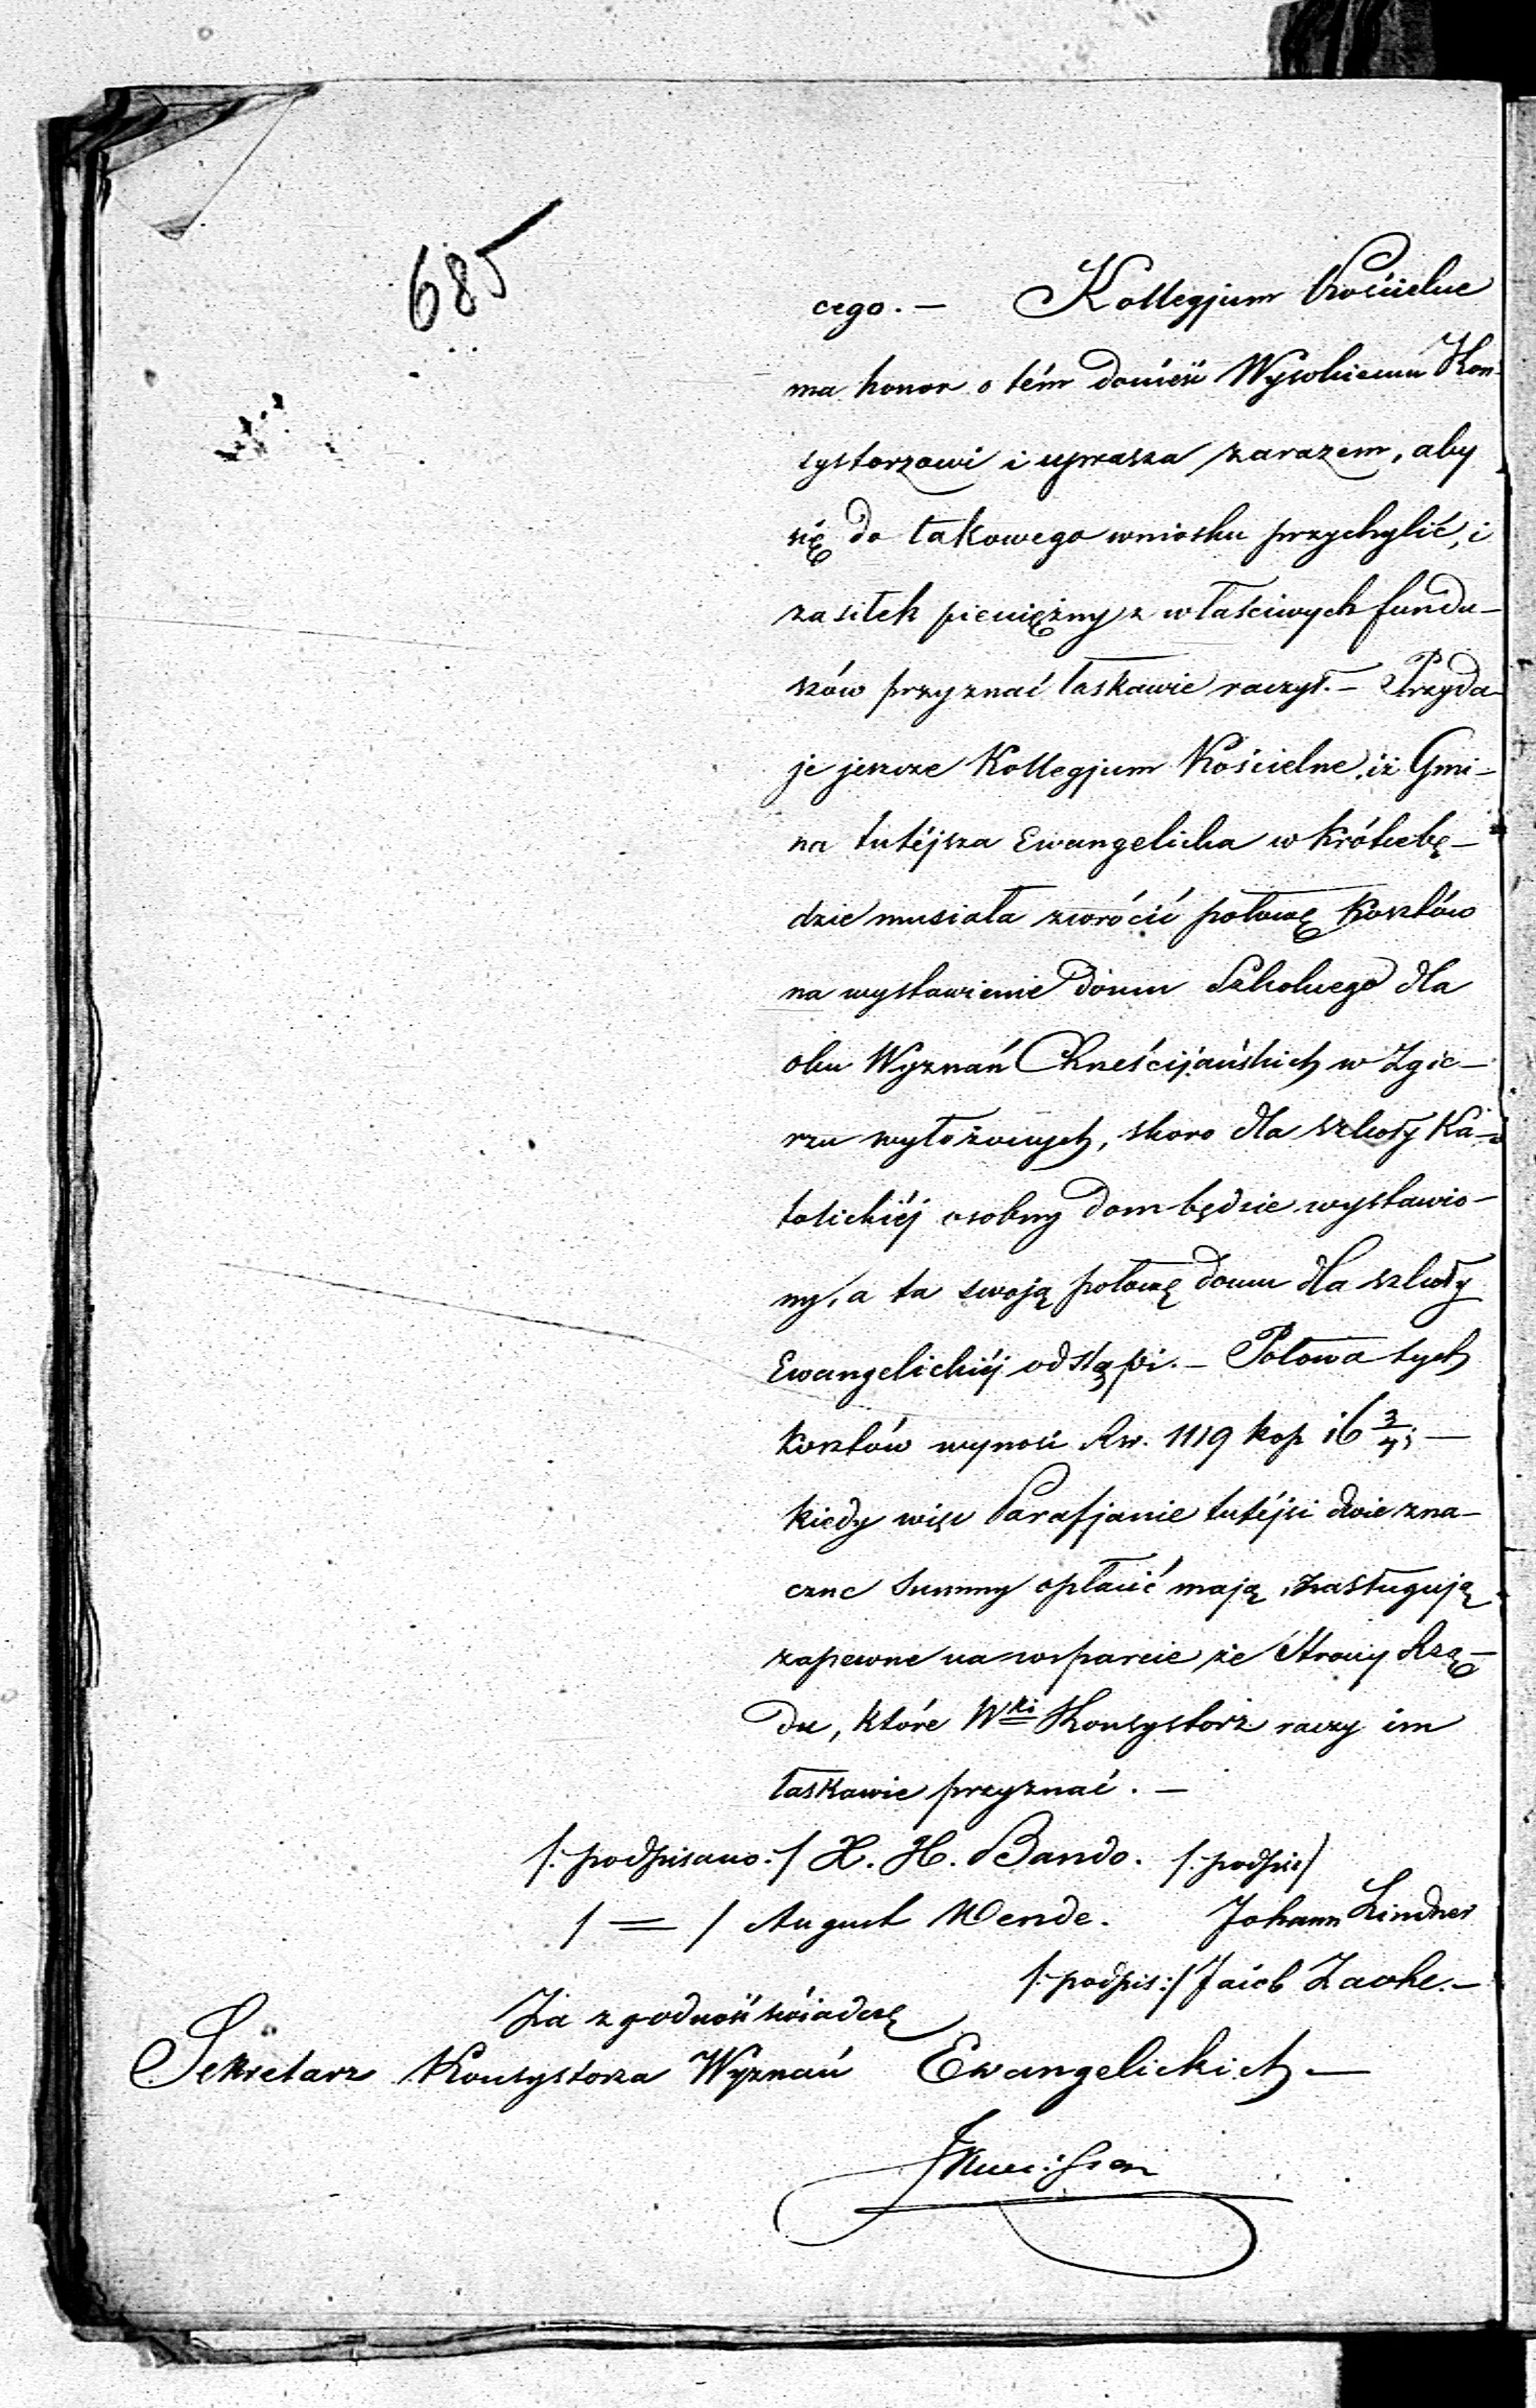 685
cego. — Kollegjum Kościelne
ma honor o tém donieść Wysokiemu Kon-
systorzowi i uprasza zarazem, aby
się do takowego wniosku przychylić, i
zasiłek pieniężny z właściwych fundu-
szów przyznać łaskawie raczył. — Przyda-
je jeszcze Kollegjum Kościelne, iż Gmi-
na tutéjsza Ewangelicka w krótce bę-
dzie musiała zwrócić połowę kosztów
na wystawienie domu Szkolnego dla
obu Wyznań Chrześcijańskich w Zgie-
rzu wyłożonych, skoro dla szkoły Ka-
tolickiéj osobny dom będzie wystawio-
ny, a ta swoją połowę domu dla szkoły
Ewangelickiéj odstąpi. — Połowa tych
kosztów wynosi Rsr. 1119 kop 16 3/4; —
kiedy więc Parafjanie tutéjsi dwie zna-
czne Summy opłacić mają, zasługują
zapewne na wsparcie ze Strony Rzą-
du, które Wki Konsystorz raczy im
łaskawie przyznać. —
/: podpisano :/ X. H. Bando. /: podpis/
/ = / August Wende. Johann Lindner
/: podpis :/ Jacob Zacke. —
Za zgodność świadczę
Sekretarz Konsystorza Wyznań Ewangelickich —